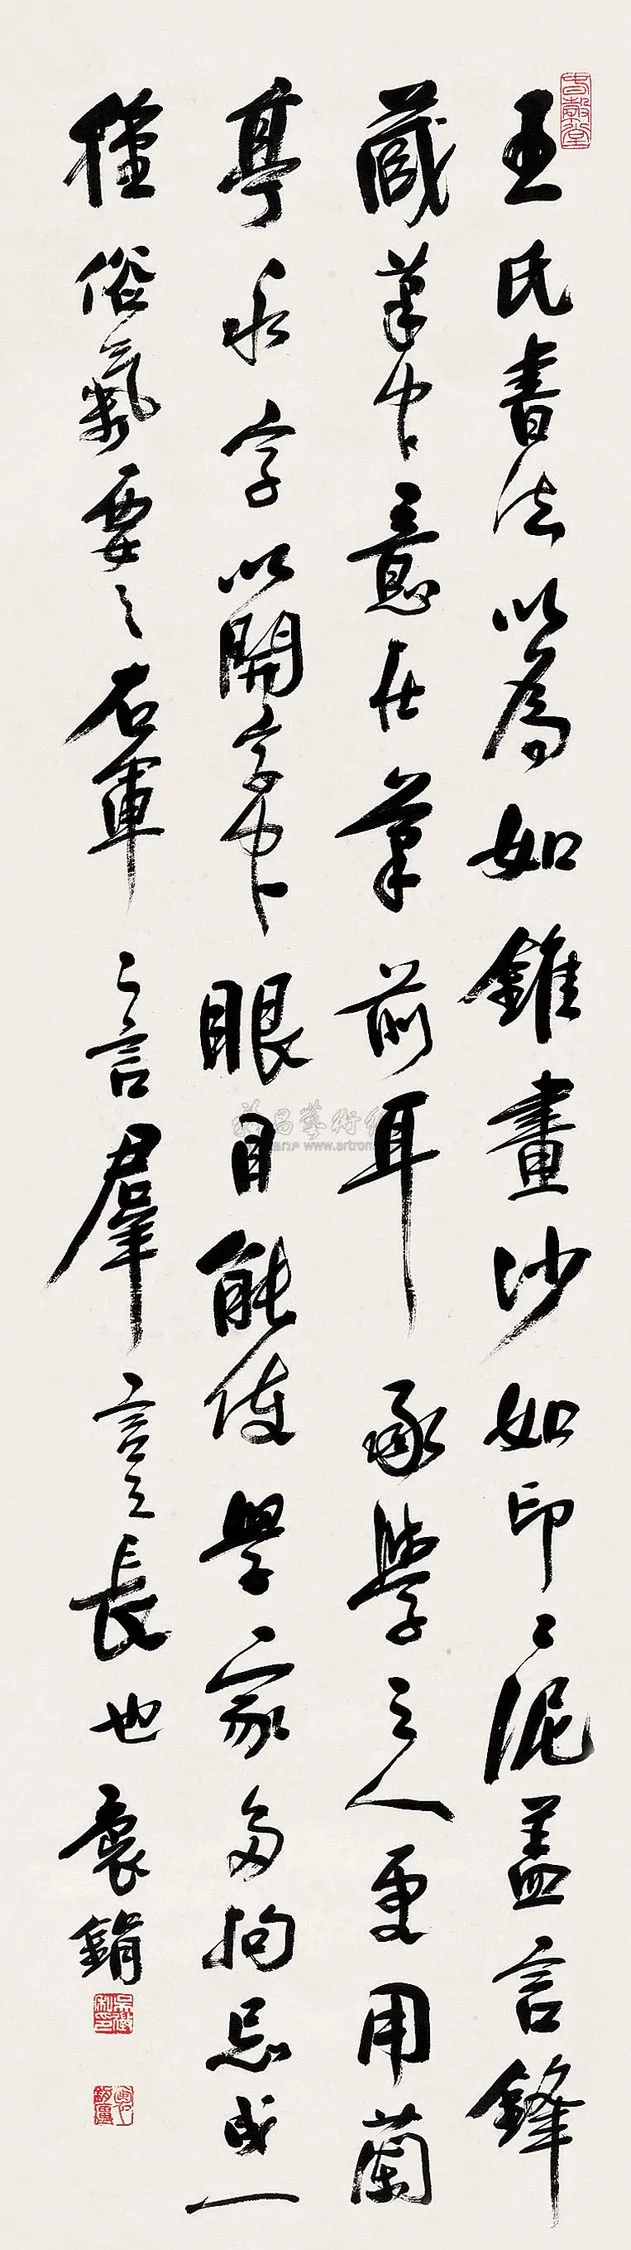 王氏書法以爲如錐畫沙如印〻泥蓋言鋒
藏筆中意在筆前耳承學之人更用蘭
亭永字以開字中眼目能使學家多拘忌成一
種俗氣要之右軍二言羣言之長也
袌鋗
吳徵私印
www.artron